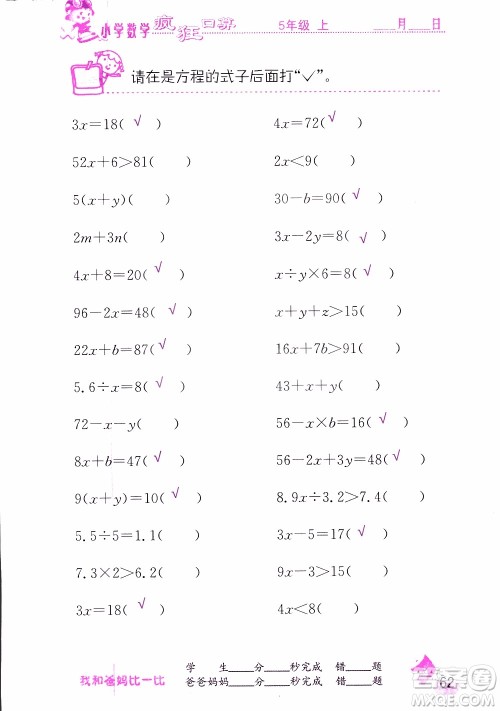 小学数学 疯狂口算 5年级 上 ____月____日
请在是方程的式子后面打“✓”。
3x=18( √ ) 4x=72( √ )
52x+6>81( ) 2x<9( )
5(x+y)( ) 30-b=90( √ )
2m+3n( ) 3x-2y=8( √ )
4x+8=20( √ ) x÷y×6=8( √ )
96-2x=48( √ ) x+y+z>15( )
22x+b=87( √ ) 16x+7b>91( )
5.6÷x=8( √ ) 43+x+y( )
72-x-y( ) 56-x×b=16( √ )
8x+b=47( √ ) 56-2x+y=48( √ )
9(x+y)=10( √ ) 8.9x÷3.2>7.4( )
5.5÷5=1.1( ) 3x-y=18( √ )
7.3×2>6.2( ) 7.2+x=8( √ )
3x=18( √ ) 4x<8( )
我和爸妈比一比
学 生____分____秒完成 错____题
爸爸妈妈____分____秒完成 错____题
62
答案圈
MXQE.COM